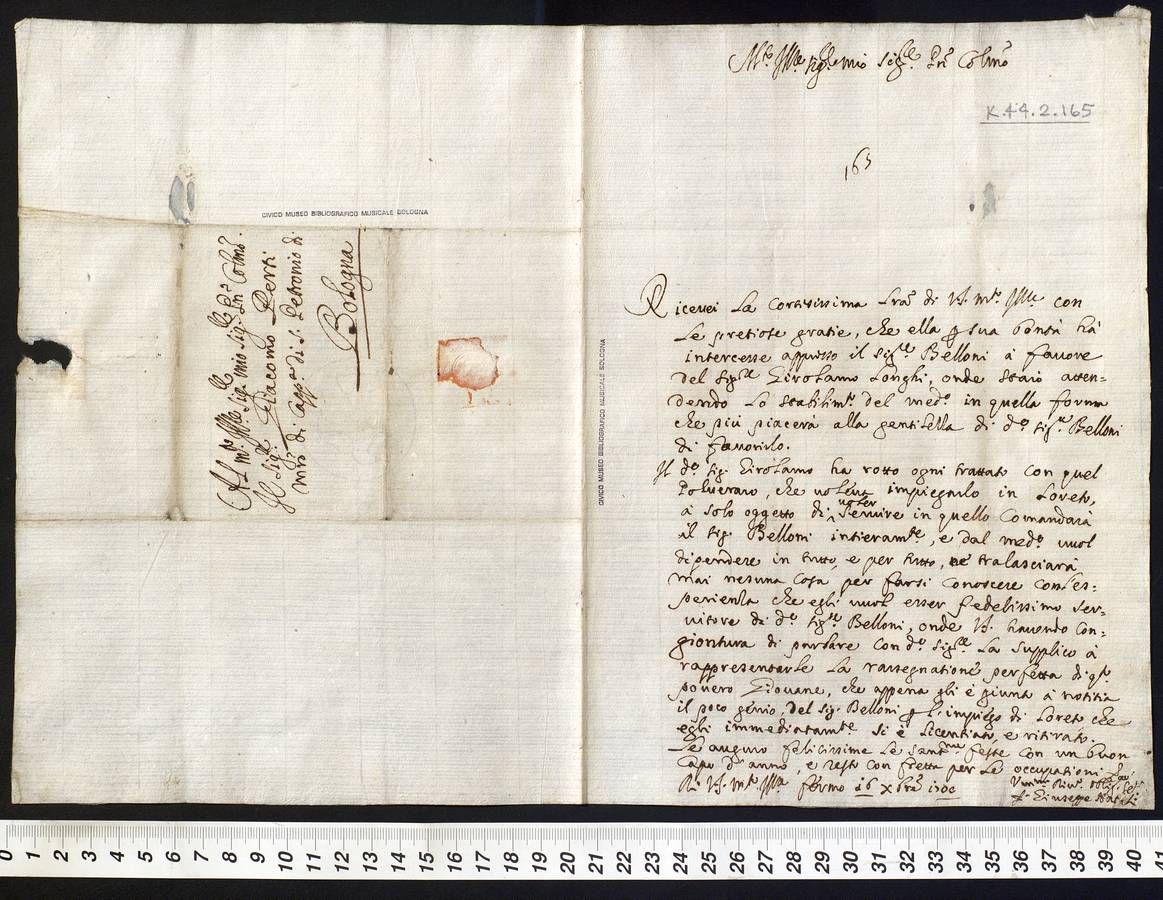 Al m.to Ill.re Sig.r mio Sig.r e P.ron Col.mo
Il Sig.r Giacomo Perti
m.ro di Capp.a di S. Petronio di
Bologna
CIVICO MUSEO BIBLIOGRAFICO MUSICALE BOLOGNA
M.to Ill.re Sig.re mio Sig.re P.ron Col.mo
K.44.2.165
165
CIVICO MUSEO BIBLIOGRAFICO MUSICALE BOLOGNA
Riceuei la Cortesissima l.ra di V.S. m.to Ill.re con
le pretiose gratie, che ella p sua bontà hà
intercesse appresso il Sig.re Belloni à fauore
del Sig.re Girolamo Longhi, onde starò atten=
dendo lo stabilim.to del med.o in quella forma
che più piacerà alla gentilezza di d.o Sig.re Belloni
di fauorirlo.
Il d.o Sig. Girolamo ha rotto ogni trattato con quel
Polueraro, che uoleua impiegarlo in Loreto,
à solo oggetto di uoler seruire in quello Comandarà
il Sig. Belloni intieram.te, e dal med.o uuol
dipendere in tutto, e per tutto, ne tralasciarà
mai nesuna Cosa per farsi Conoscere con es=
perienza che egli uuol esser fedelissimo ser=
uitore di d.o Sig.re Belloni, onde V.S. hauendo con=
giontura di parlare con d.o Sig.re la supplico à
rappresentarle la rassegnatione perfetta di q.to
pouero Giouane, che appena gli è giunta à notitia
il poco genio, del Sig. Belloni p l'impiego di Loreto che
egli immediatam.te si è licentiato, e ritirato.
Le auguro felicissime le sant.me feste con un buon
Capo d'anno, e resto con fretta per le occupationi
Di V.S. m.to Ill.re Fermo 16 Xbre
Giuseppe